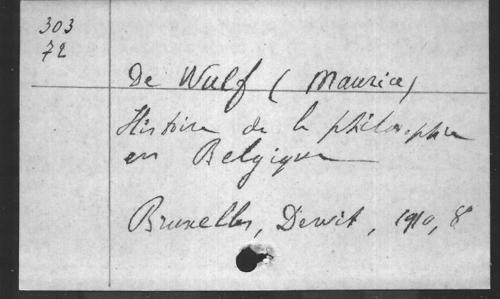 303
72
De Wulf (Maurice)
Histoire de la philosophie
en Belgique
Bruxelles, Dewit, 1910, 8°